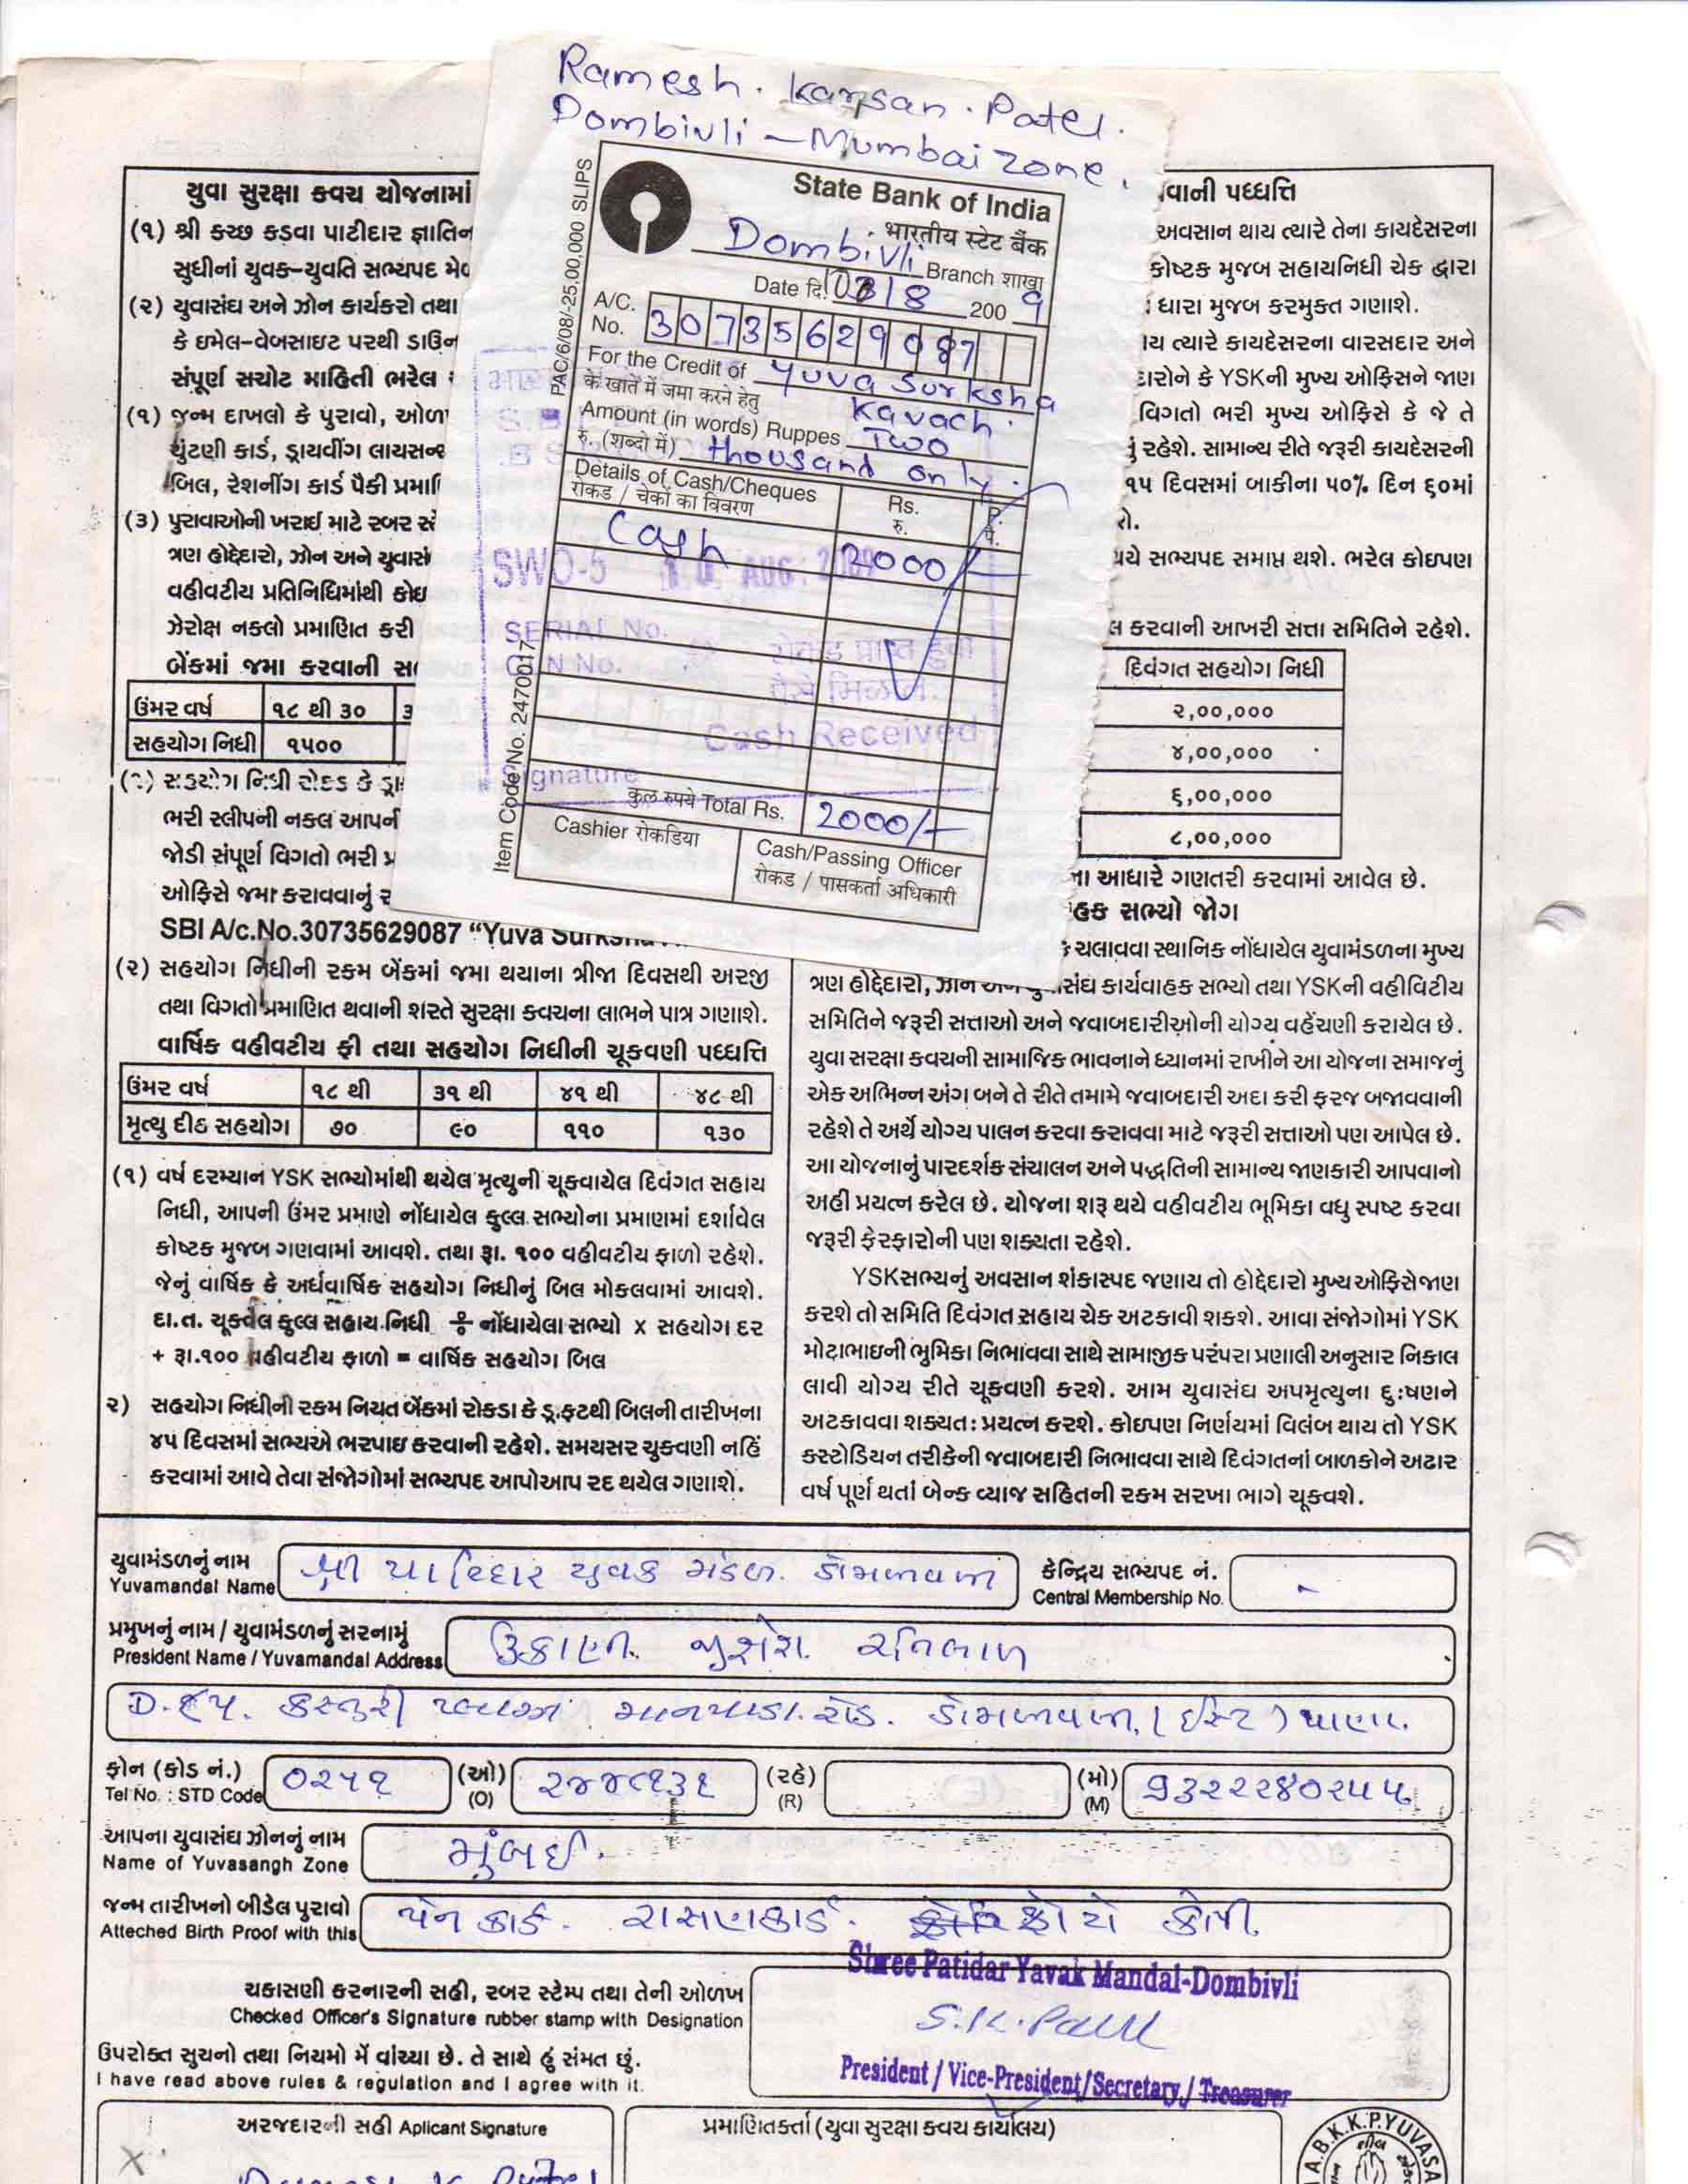 Ramesh. Karsan. Patel.
Dombivli - Mumbai Zone.
PAC/6/08/-25,00,000 SLIPS
State Bank of India
भारतीय स्टेट बैंक
Dombivli Branch शाखा
Date दि. 8 200 9
A/C. No. 30735629087
For the Credit of Yuva Surksha
के खाते में जमा करने हेतु Kavach.
Amount (in words) Ruppes Two
रु. (शब्दो में) thousand only.
Details of Cash/Cheques Rs. P.
रोकड / चेकों का विवरण रु. पै.
Cash 2000/-
SWO-5 10 AUG. 2009
SERIAL No.
रोकड प्राप्त हुवा
Cash Received
Signature
कुल रुपये Total Rs. 2000/-
Cashier रोकडिया
Cash/Passing Officer
रोकड / पासकर्ता अधिकारी
Item Code No. 2470017
યુવા સુરક્ષા કવચ યોજનામાં
(૧) શ્રી કચ્છ કડવા પાટીદાર જ્ઞાતિન
સુધીનાં યુવક-યુવતિ સભ્યપદ મેળ
(૨) યુવાસંઘ અને ઝોન કાર્યકરો તથા
કે ઇમેલ-વેબસાઇટ પરથી ડાઉન
સંપૂર્ણ સચોટ માહિતી ભરેલ
(૧) જન્મ દાખલો કે પુરાવો, ઓળ
ચુંટણી કાર્ડ, ડ્રાયવીંગ લાયસન્સ
બિલ, રેશનીંગ કાર્ડ પૈકી પ્રમાણિ
(૩) પુરાવાઓની ખરાઈ માટે રબર સ્ટે
ત્રણ હોદ્દેદારો, ઝોન અને યુવાસં
વહીવટીય પ્રતિનિધિમાંથી કોઇ
ઝેરોક્ષ નકલો પ્રમાણિત કરી
બેંકમાં જમા કરવાની સ
ઉંમર વર્ષ ૧૮ થી ૩૦ ૩
સહયોગ નિધી ૧૫૦૦
(૧) સહયોગ નિધી રોકડ કે ડ્રા
ભરી સ્લીપની નકલ આપની
જોડી સંપૂર્ણ વિગતો ભરી પ્ર
ઓફિસે જમા કરાવવાનું ર
SBI A/c.No.30735629087 “Yuva Surksha
(૨) સહયોગ નિધીની રકમ બેંકમાં જમા થયાના ત્રીજા દિવસથી અરજી
તથા વિગતો પ્રમાણિત થવાની શરતે સુરક્ષા કવચના લાભને પાત્ર ગણાશે.
વાર્ષિક વહીવટીય ફી તથા સહયોગ નિધીની ચૂકવણી પધ્ધતિ
ઉંમર વર્ષ ૧૮ થી ૩૧ થી ૪૧ થી ૪૮ થી
મૃત્યુ દીઠ સહયોગ ૭૦ ૯૦ ૧૧૦ ૧૩૦
(૧) વર્ષ દરમ્યાન YSK સભ્યોમાંથી થયેલ મૃત્યુની ચૂકવાયેલ દિવંગત સહાય
નિધી, આપની ઉંમર પ્રમાણે નોંધાયેલ કુલ્લ સભ્યોના પ્રમાણમાં દર્શાવેલ
કોષ્ટક મુજબ ગણવામાં આવશે. તથા રૂા. ૧૦૦ વહીવટીય ફાળો રહેશે.
જેનું વાર્ષિક કે અર્ધવાર્ષિક સહયોગ નિધીનું બિલ મોકલવામાં આવશે.
દા.ત. ચૂકવેલ કુલ્લ સહાય નિધી ÷ નોંધાયેલા સભ્યો x સહયોગ દર
+ રૂા.૧૦૦ વહીવટીય ફાળો = વાર્ષિક સહયોગ બિલ
૨) સહયોગ નિધીની રકમ નિયત બેંકમાં રોકડા કે ડ્રાફ્ટથી બિલની તારીખના
૪૫ દિવસમાં સભ્યએ ભરપાઇ કરવાની રહેશે. સમયસર ચુકવણી નહિં
કરવામાં આવે તેવા સંજોગોમાં સભ્યપદ આપોઆપ રદ થયેલ ગણાશે.
વાની પધ્ધતિ
અવસાન થાય ત્યારે તેના કાયદેસરના
કોષ્ટક મુજબ સહાયનિધી ચેક દ્વારા
ધારા મુજબ કરમુક્ત ગણાશે.
ાય ત્યારે કાયદેસરના વારસદાર અને
દારોને કે YSKની મુખ્ય ઓફિસને જાણ
વિગતો ભરી મુખ્ય ઓફિસે કે જે તે
નું રહેશે. સામાન્ય રીતે જરૂરી કાયદેસરની
૧૫ દિવસમાં બાકીના ૫૦% દિન ૬૦માં
શે.
થયે સભ્યપદ સમાપ્ત થશે. ભરેલ કોઇપણ
લ કરવાની આખરી સત્તા સમિતિને રહેશે.
દિવંગત સહયોગ નિધી
૨,૦૦,૦૦૦
૪,૦૦,૦૦૦
૬,૦૦,૦૦૦
૮,૦૦,૦૦૦
ના આધારે ગણતરી કરવામાં આવેલ છે.
હક સભ્યો જોગ
ક ચલાવવા સ્થાનિક નોંધાયેલ યુવામંડળના મુખ્ય
ત્રણ હોદ્દેદારો, ઝોન અને યુવાસંઘ કાર્યવાહક સભ્યો તથા YSKની વહીવિટીય
સમિતિને જરૂરી સત્તાઓ અને જવાબદારીઓની યોગ્ય વહેંચણી કરાયેલ છે.
યુવા સરક્ષા કવચની સામાજિક ભાવનાને ધ્યાનમાં રાખીને આ યોજના સમાજનું
એક અભિન્ન અંગ બને તે રીતે તમામે જવાબદારી અદા કરી ફરજ બજાવવાની
રહેશે તે અર્થે યોગ્ય પાલન કરવા કરાવવા માટે જરૂરી સત્તાઓ પણ આપેલ છે.
આ યોજનાનું પારદર્શક સંચાલન અને પદ્ધતિની સામાન્ય જાણકારી આપવાનો
અહી પ્રયત્ન કરેલ છે. યોજના શરૂ થયે વહીવટીય ભૂમિકા વધુ સ્પષ્ટ કરવા
જરૂરી ફેરફારોની પણ શક્યતા રહેશે.
YSKસભ્યનું અવસાન શંકાસ્પદ જણાય તો હોદ્દેદારો મુખ્ય ઓફિસે જાણ
કરશે તો સમિતિ દિવંગત સહાય ચેક અટકાવી શકશે. આવા સંજોગોમાં YSK
મોટાભાઇની ભુમિકા નિભાવવા સાથે સામાજીક પરંપરા પ્રણાલી અનુસાર નિકાલ
લાવી યોગ્ય રીતે ચૂકવણી કરશે. આમ યુવાસંઘ અપમૃત્યુના દુઃષણને
અટકાવવા શક્યતઃ પ્રયત્ન કરશે. કોઇપણ નિર્ણયમાં વિલંબ થાય તો YSK
કસ્ટોડિયન તરીકેની જવાબદારી નિભાવવા સાથે દિવંગતનાં બાળકોને અઢાર
વર્ષ પૂર્ણ થતાં બેન્ક વ્યાજ સહિતની રકમ સરખા ભાગે ચૂકવશે.
યુવામંડળનું નામ શ્રી પાટિદાર યુવક મંડળ. ડોમ્બીવલી
Yuvamandal Name
કેન્દ્રિય સભ્યપદ નં. -
Central Membership No.
પ્રમુખનું નામ / યુવામંડળનું સરનામું
President Name / Yuvamandal Address
કસ્તુરી પ્લાઝા માનપાડા રોડ. (ઈસ્ટ) થાણા.
ફોન (કોડ નં.) ૦૨૫૧ (ઓ) ૨૪૪૮૧૩૬ (રહે) (મો) ૯૩૨૨૨૪૦૨૫૫
Tel No. : STD Code (O) (R) (M)
આપના યુવાસંઘ ઝોનનું નામ મુંબઈ.
Name of Yuvasangh Zone
જન્મ તારીખનો બીડેલ પુરાવો પેન કાર્ડ. રાસણકાર્ડ.
Atteched Birth Proof with this
ચકાસણી કરનારની સહી, રબર સ્ટેમ્પ તથા તેની ઓળખ
Checked Officer's Signature rubber stamp with Designation
Shree Patidar Yavak Mandal-Dombivli
S.K. Patel
President / Vice-President/Secretary / Treasurer
ઉપરોક્ત સુચનો તથા નિયમો મેં વાંચ્યા છે. તે સાથે હું સંમત છું.
I have read above rules & regulation and I agree with it.
અરજદારની સહી Aplicant Signature
પ્રમાણિતકર્તા (યુવા સુરક્ષા કવચ કાર્યાલય)
A.B.K.K.P.YUVASA